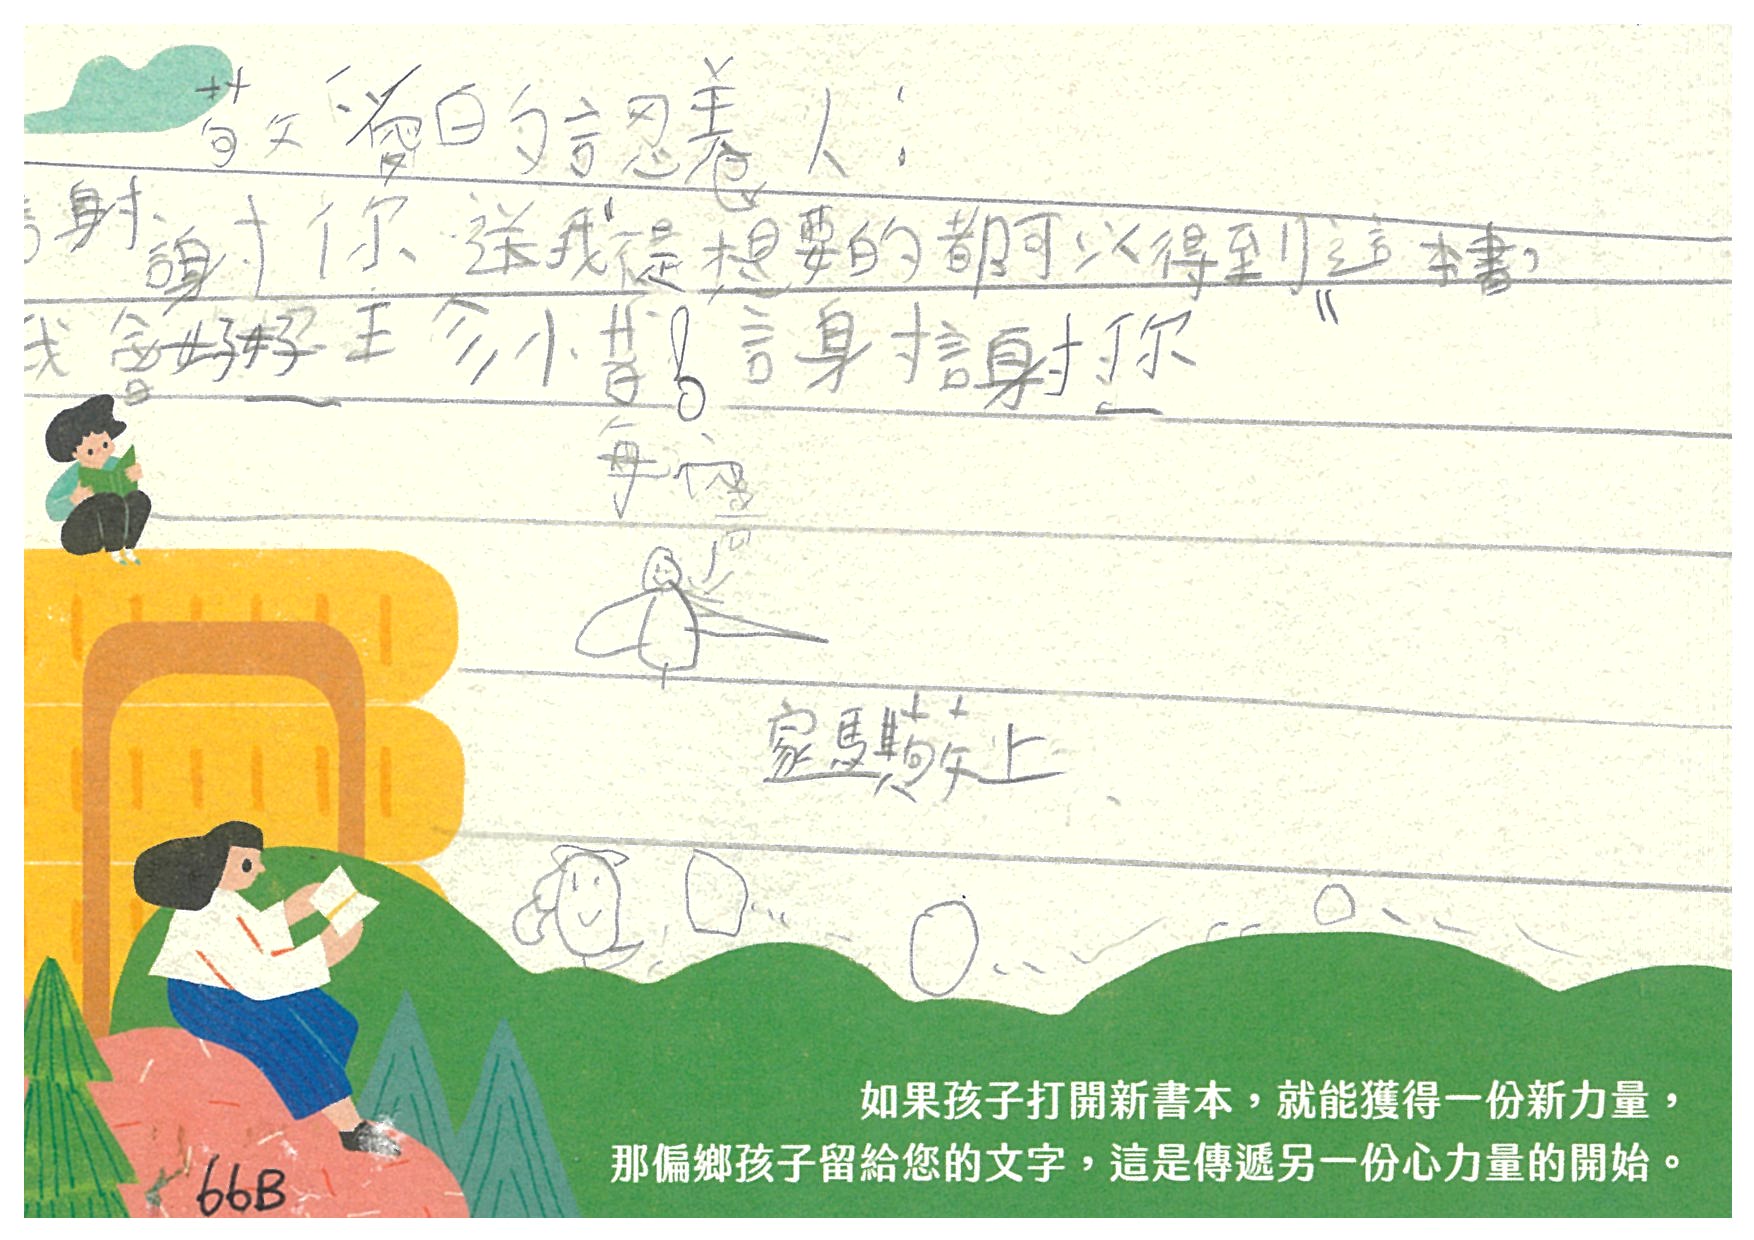 敬愛的認養人：
謝謝你送我"從想要的都可以得到"這本書，
我會好好珍惜！謝謝你
每
家騏敬上
如果孩子打開新書本，就能獲得一份新力量，
那偏鄉孩子留給您的文字，這是傳遞另一份心力量的開始。
66B